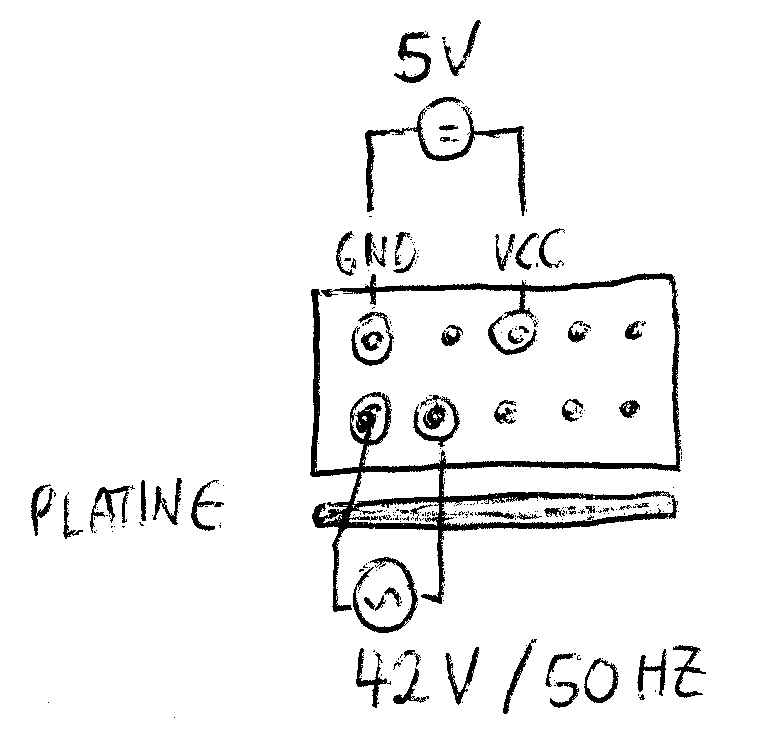 5V
GND VCC
PLATINE
42V/50HZ